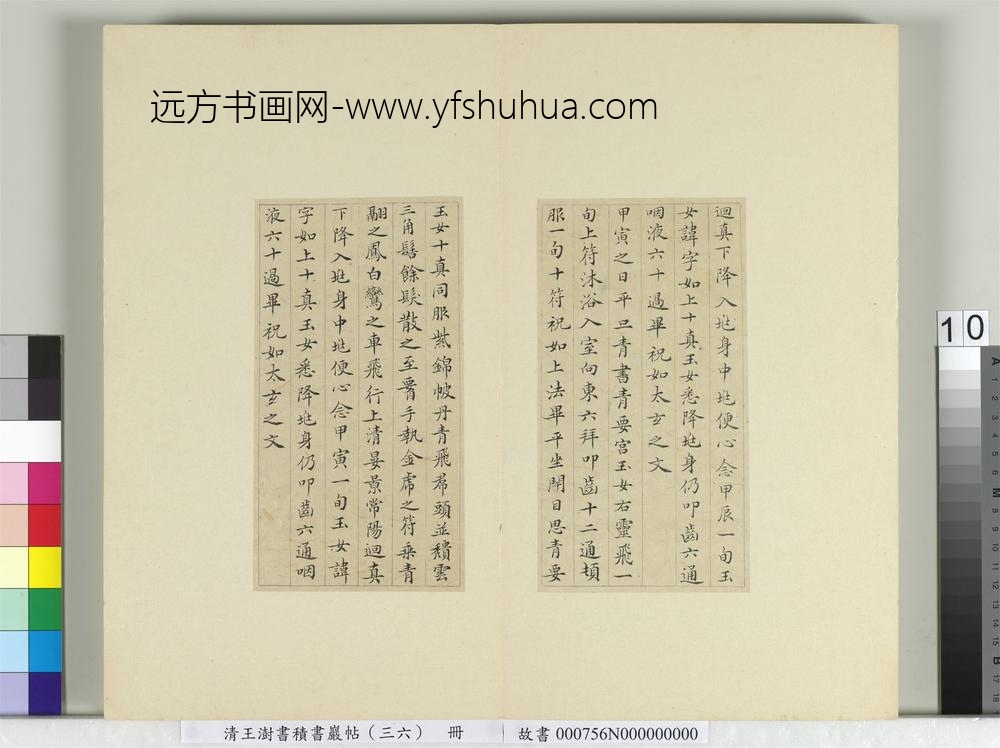 远方书画网-www.yfshuhua.com
迴真下降入坣身中坣便心念甲辰一旬玉
女諱字如上十真玉女悉降坣身仍叩齒六通
咽液六十過畢祝如太玄之文
甲寅之日平旦青書青要宫玉女右靈飛一
旬上符沐浴入室向東六拜叩齒十二通頓
服一旬十符祝如上法畢平坐閉目思青要
玉女十真同服紫錦帔丹青飛帬頭並穨雲
三角髻餘髮散之至要手執金席之符乗青
翮之鳳白鸞之車飛行上清晏景常陽迴真
下降入坣身中坣便心念甲寅一旬玉女諱
字如上十真玉女悉降坣身仍叩齒六通咽
液六十過畢祝如太玄之文
清王澍書積書巖帖（三六） 冊
故書 000756N000000000
10